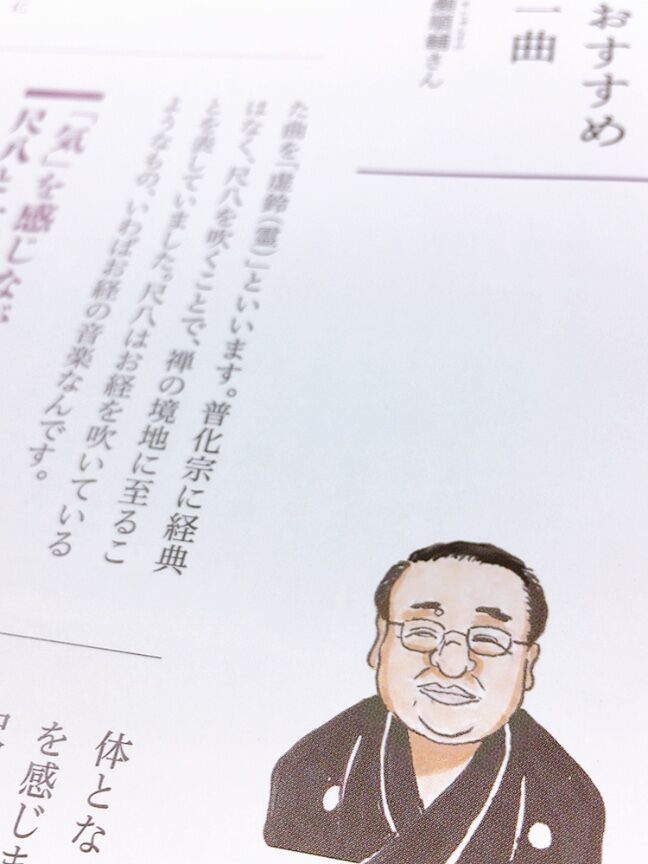 おすすめ
一曲
順輔さん
た曲を「虚鈴（霊）」といいます。普化宗に経典
はなく、尺八を吹くことで、禅の境地に至るこ
とを表していました。尺八はお経を吹いている
ようなもの、いわばお経の音楽なんです。
「気」を感じなが
尺八と
体とな
を感じ